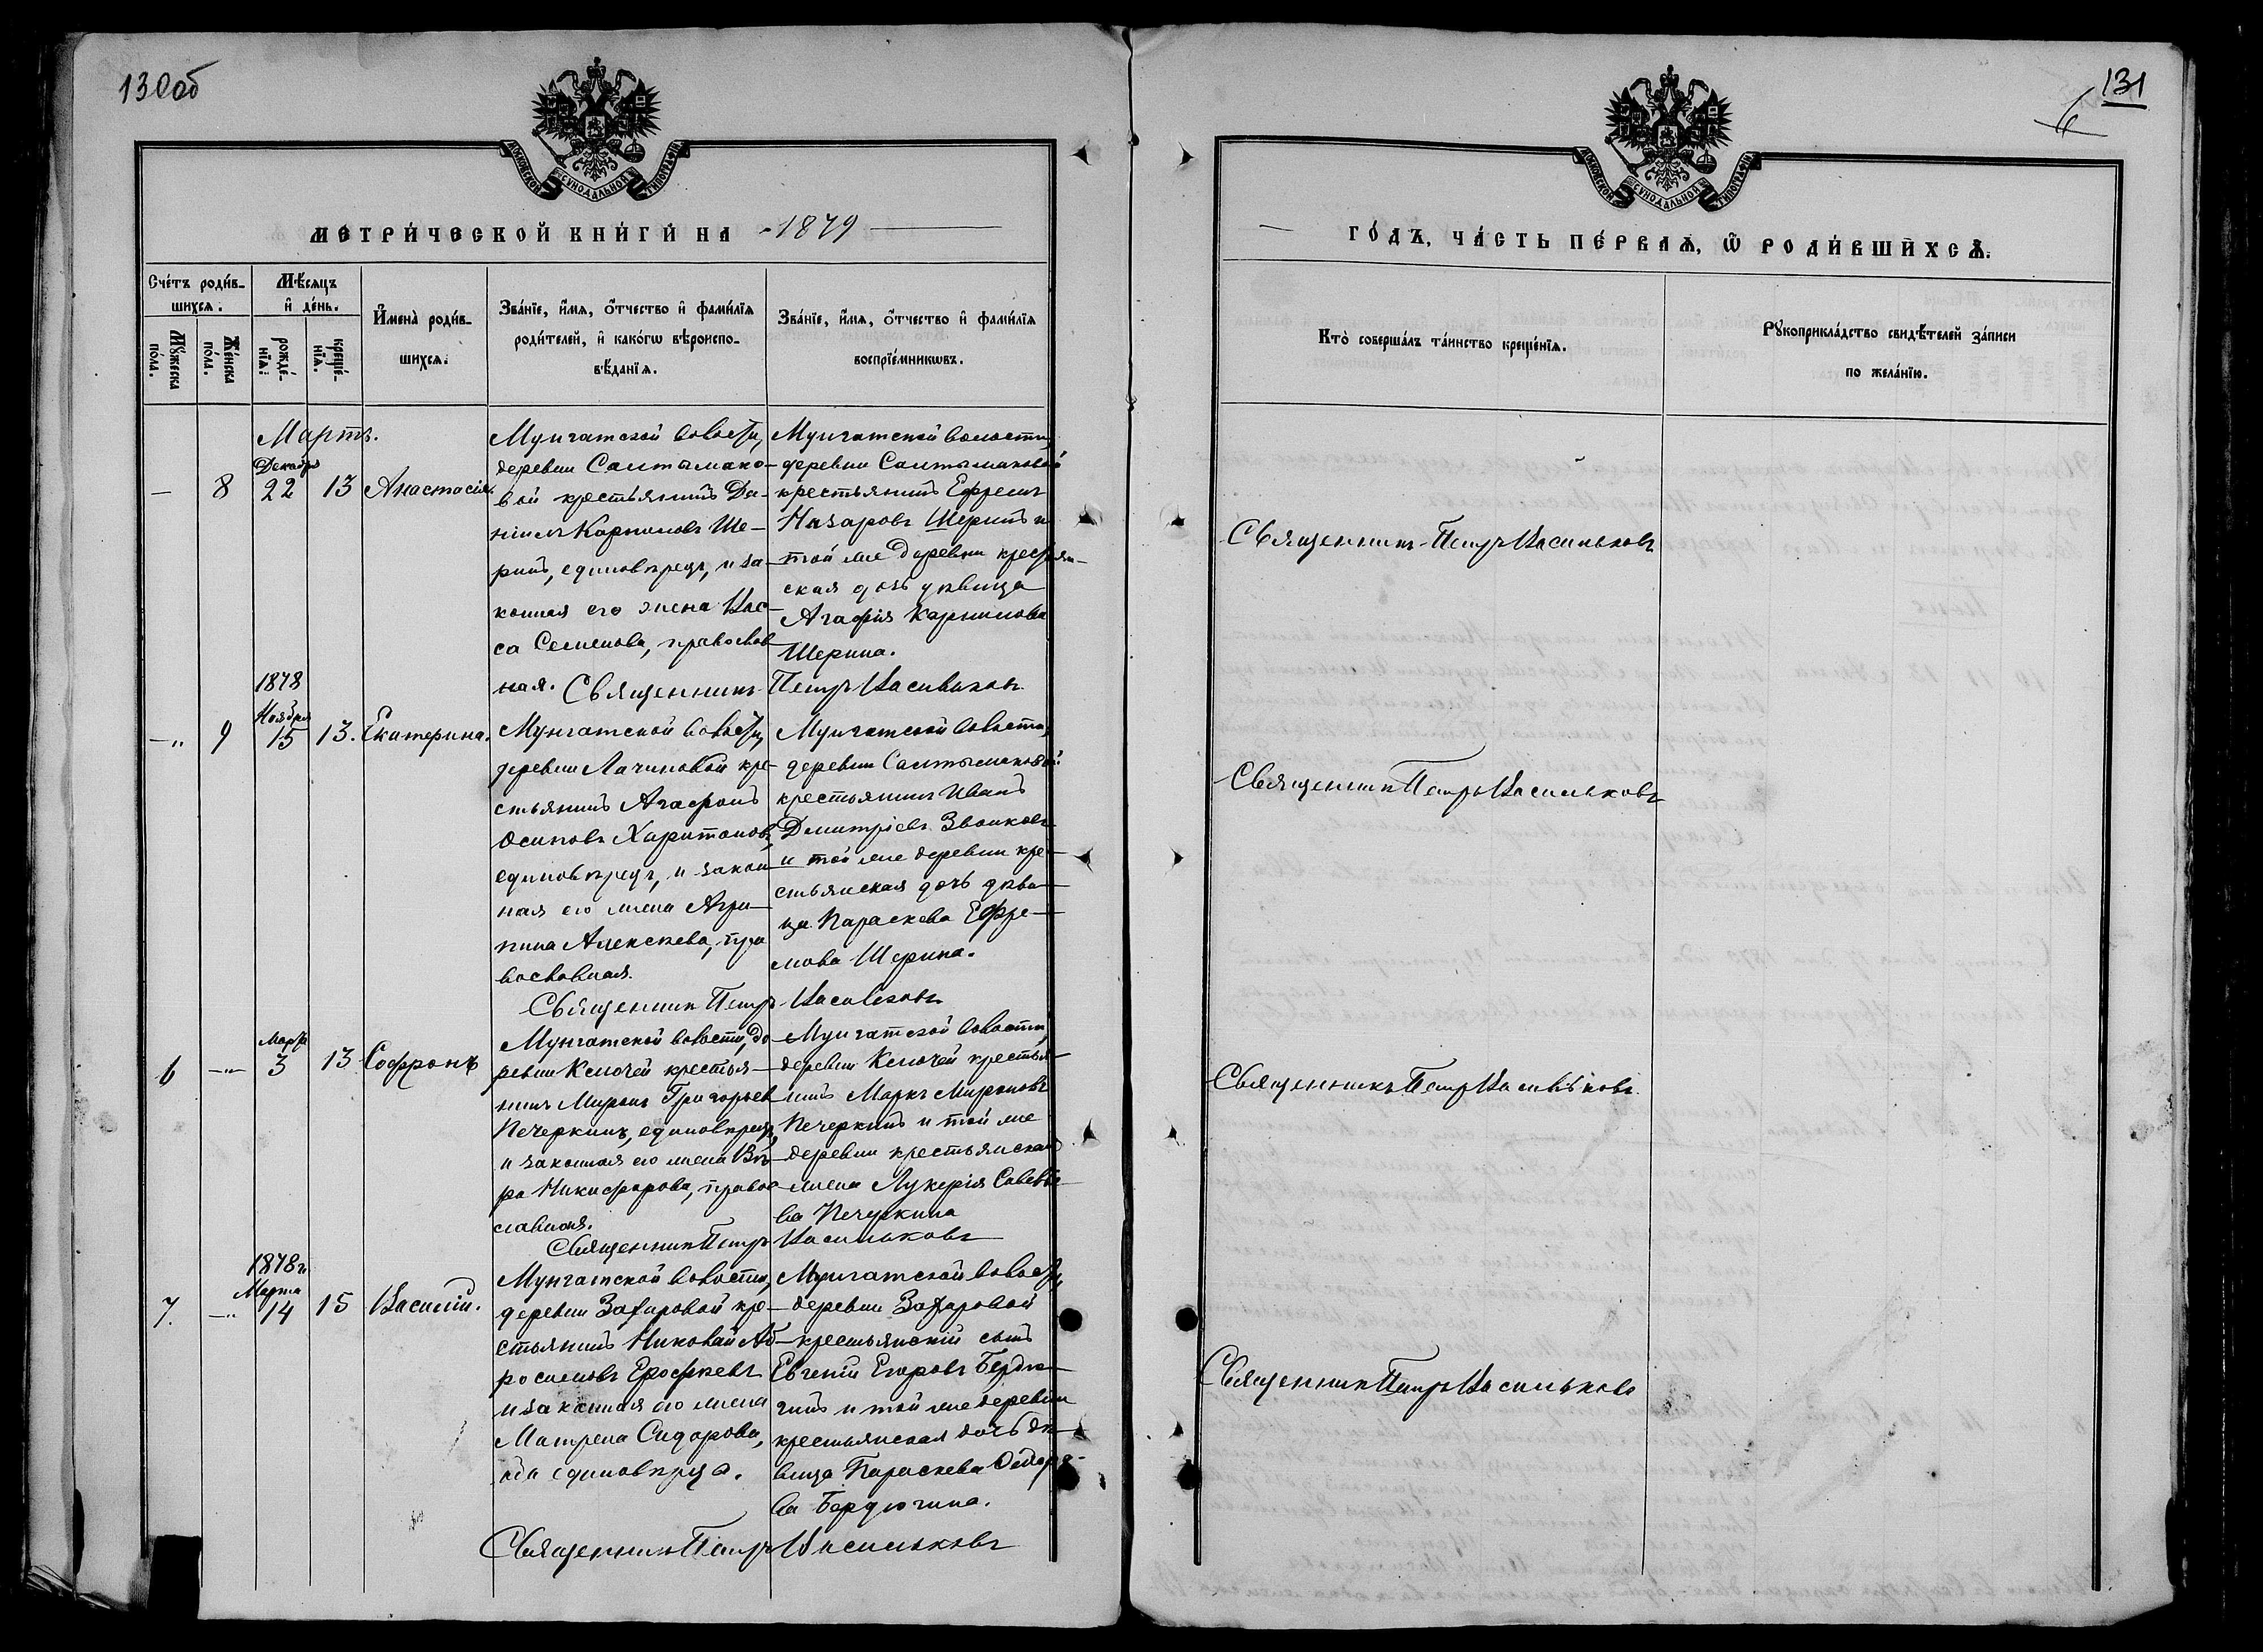 130об
131
6
МОСКОВСКОЙ СѴНОДАЛЬНОЙ ТИПОГРАФІИ
МОСКОВСКОЙ СѴНОДАЛЬНОЙ ТИПОГРАФІИ
МЕТРИ́ЧЕСКОЙ КНИ́ГИ НА 1879
ГО́ДЪ, ЧА́СТЬ ПЕ́РВАѦ, Ѿ РОДИ́ВШИХСѦ.
Сче́тъ роди́в-
шихсѧ.
Мꙋ́жеска по́ла.
Же́нска по́ла.
Мѣ́сѧцъ
и҆ де́нь.
рожде́-нїѧ.
креще́-нїѧ.
И҆мена̀ роди́в-
шихсѧ.
Зва́нїе, и҆́мѧ, ѻ҆́тчество и҆ фами́лїѧ
роди́телей, и҆ како́гѡ вѣроиспо-
вѣ́данїѧ.
Зва́нїе, и҆́мѧ, ѻ҆́тчество и҆ фами́лїѧ
воспрїе́мникѡвъ.
Кто̀ соверша́лъ та́инство креще́нїѧ.
Рꙋкоприкла́дство свидѣ́телей за́писи
по жела́нїю.
Мартъ.
— 8
Декабря
22 13 Анастасія
Мунгатской волости,
деревни Салтымако-
вой крестьянинъ Да-
ніилъ Карпиловъ Ше-
ринъ, единовѣрецъ, и за-
конная его жена Вас-
са Семенова, православ
ная.
Мунгатской волости,
деревни Салтымаковой
крестьянинъ Ефремъ
Назаровъ Шеринъ и
той же деревни крестьян-
ская дочь дѣвица
Агафія Карпилова
Шерина.
Священникъ Петръ Васильковъ
Священникъ Петръ Васильковъ
—„ 9
1878
Ноября
15 13. Екатерина.
Мунгатской волости,
деревни Лачиновой кре-
стьянинъ Агафонъ
Осиповъ Харитоновъ,
единовѣрецъ, и закон-
ная его жена Агри-
пина Алексѣева, пра
вославная.
Мунгатской волости,
деревни Салтымаковой
крестьянинъ Иванъ
Дмитріевъ Звонковъ
и той же деревни кре-
стьянская дочь дѣви-
ца Параскева Ефре-
мова Шерина.
Священникъ Петръ Васильковъ
Священникъ Петръ Васильковъ
6 —„—
Марта
3 13 Софронъ
Мунгатской волости, де
ревни Ключей крестья-
нинъ Миронъ Григорьевъ
Печеркинъ, единовѣрецъ,
и законная его жена Вѣ-
ра Никифорова, право-
славная.
Мунгатской волости,
деревни Ключей крестья-
нинъ Маркъ Мироновъ
Печеркинъ и той же
деревни крестьянская
жена Лукерія Савелье-
ва Печеркина
Священникъ Петръ Васильковъ
Священникъ Петръ Васильковъ
7. —„
1878 г.
Марта
14 15 Василій.
Мунгатской волости,
деревни Захаровой кре-
стьянинъ Николай Аб-
росимовъ Ерофѣевъ
и законная его жена
Матрена Сидорова,
оба единовѣрца.
Мунгатской волости,
деревни Захаровой
крестьянскій сынъ
Евгеній Егоровъ Бердю-
гинъ и той же деревни
крестьянская дочь дѣ-
вица Параскева Федоро-
ва Бердюгина.
Священникъ Петръ Васильковъ
Священникъ Петръ Васильковъ